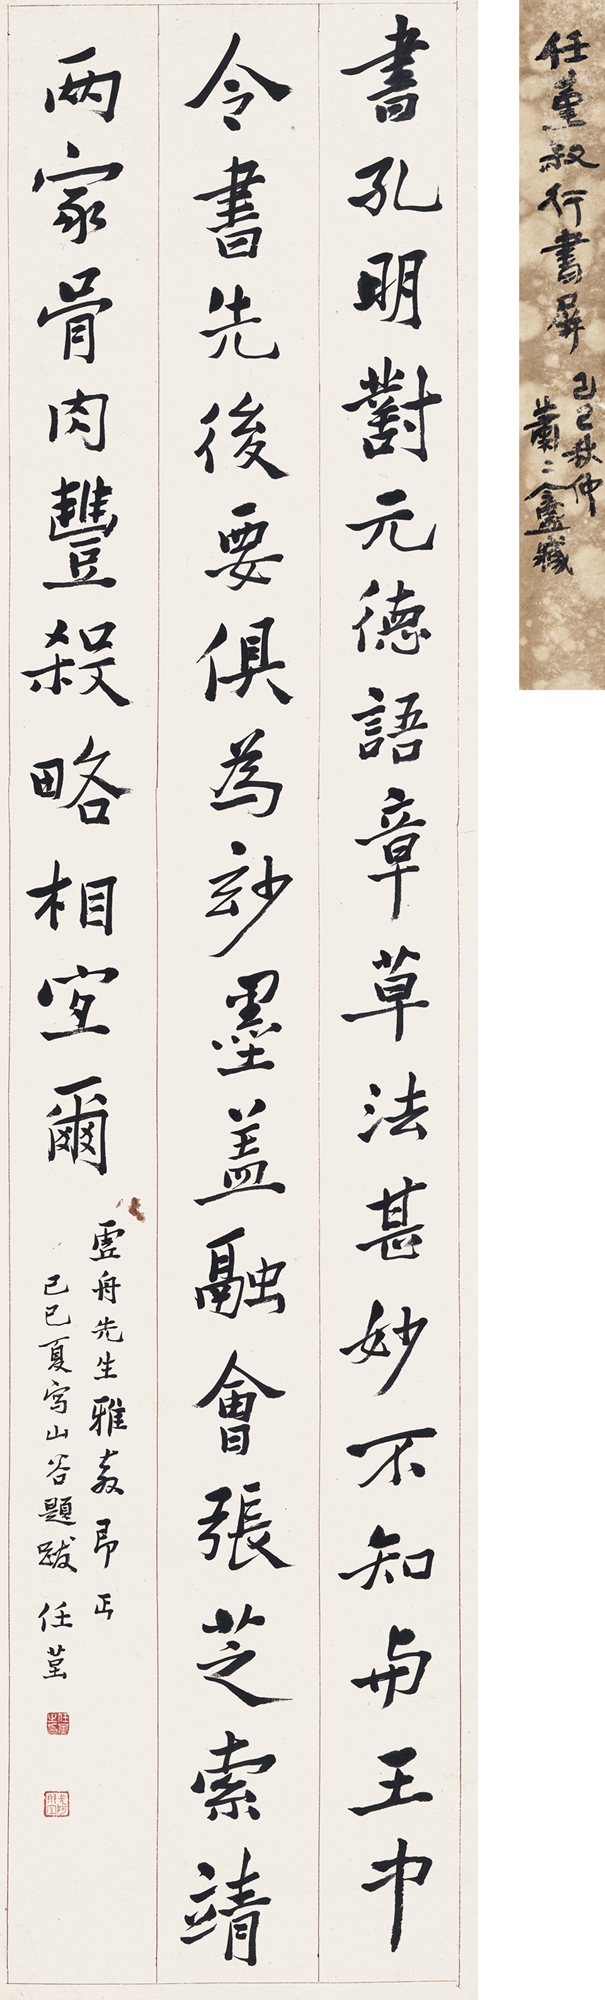 書孔明對元德語章草法甚妙不知與王中
令書先後要俱為玅墨蓋融會張芝索靖
兩家骨肉豐殺略相宜爾
虛舟先生雅教即正
己巳夏寫山谷題跋 任堇
任堇叔行書屏
己巳秋仲
蕭二盦藏